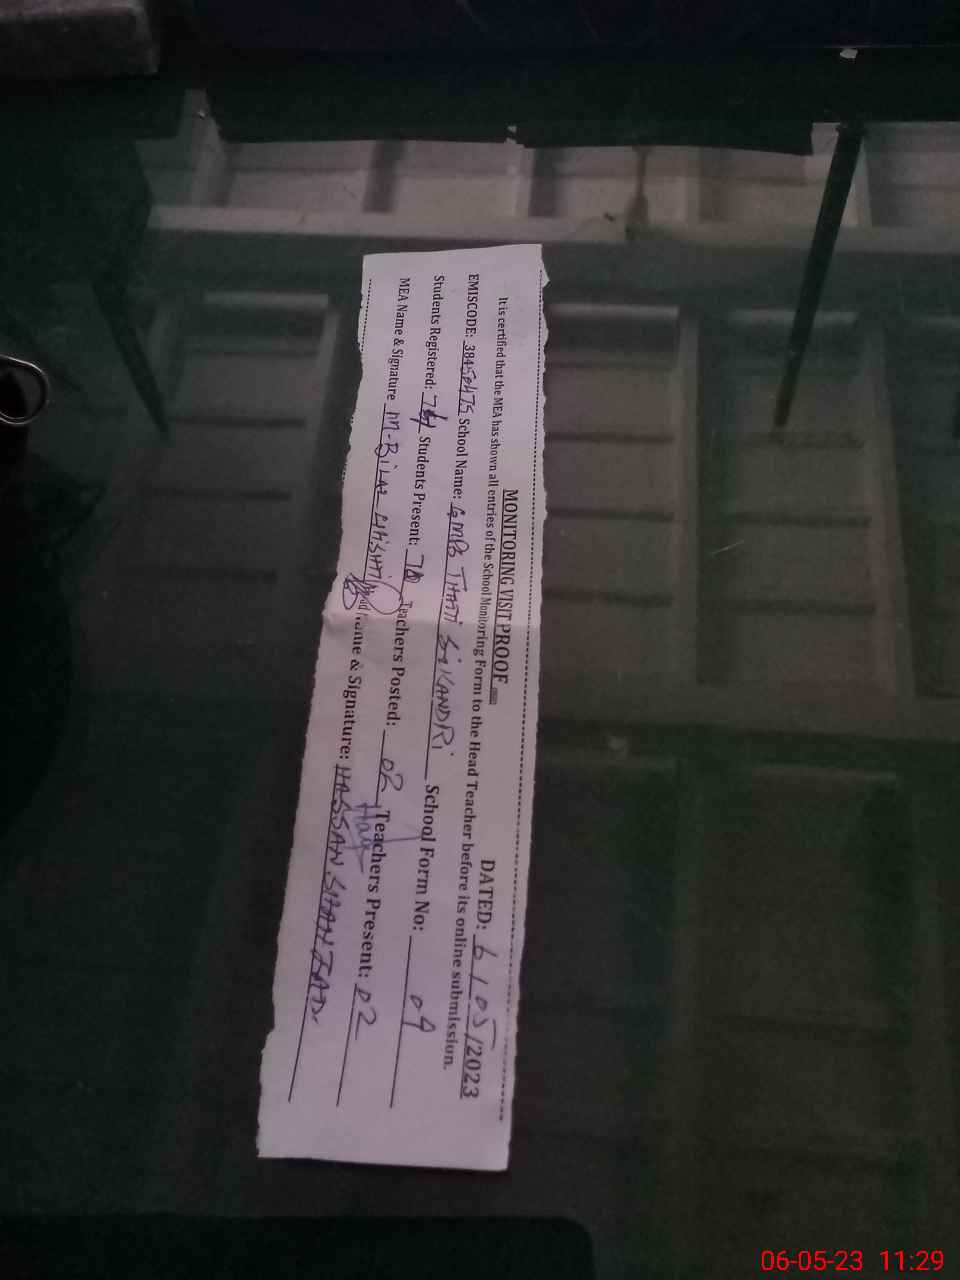 MONITORING VISIT PROOF
DATED: 6/05/2023
It is certified that the MEA has shown all entries of the School Monitoring Form to the Head Teacher before its online submission.
EMISCODE: School Name: GMPS THATI SIKANDRI School Form No: 04
Students Registered: Students Present: Teachers Posted: 02 Teachers Present: 02
MEA Name & Signature M-BiLAL CHiSHTi Name & Signature: HASSAN
06-05-23 11:29